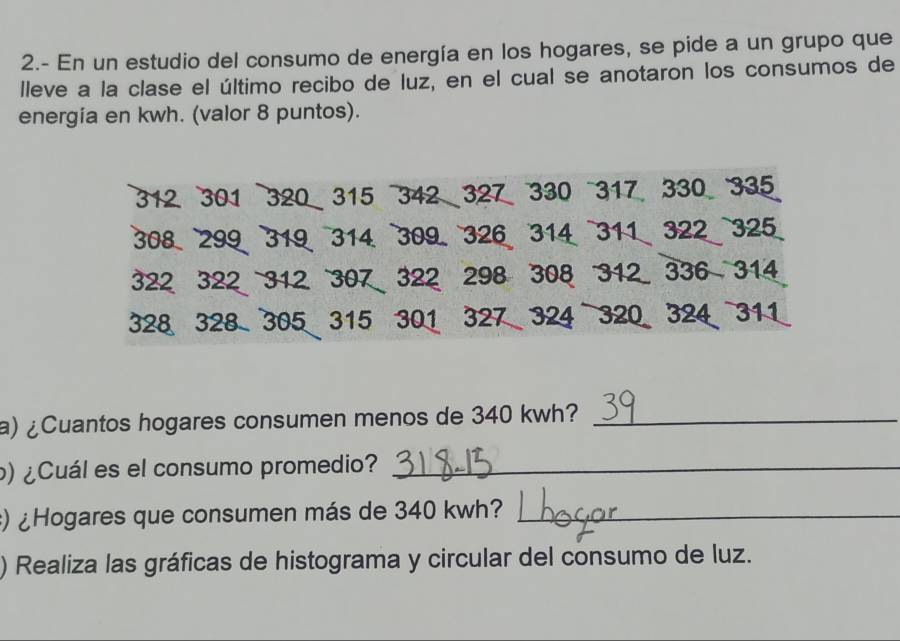 2.- En un estudio del consumo de energía en los hogares, se pide a un grupo que
lleve a la clase el último recibo de luz, en el cual se anotaron los consumos de
energía en kwh. (valor 8 puntos).
312 301 320 315 342 327 330 317 330 335
308 299 319 314 309 326 314 311 322 325
322 322 312 307 322 298 308 312 336 314
328 328 305 315 301 327 324 320 324 311
a) ¿Cuantos hogares consumen menos de 340 kwh? 39
b) ¿Cuál es el consumo promedio? 318.15
) ¿Hogares que consumen más de 340 kwh? 1 hogar
) Realiza las gráficas de histograma y circular del consumo de luz.